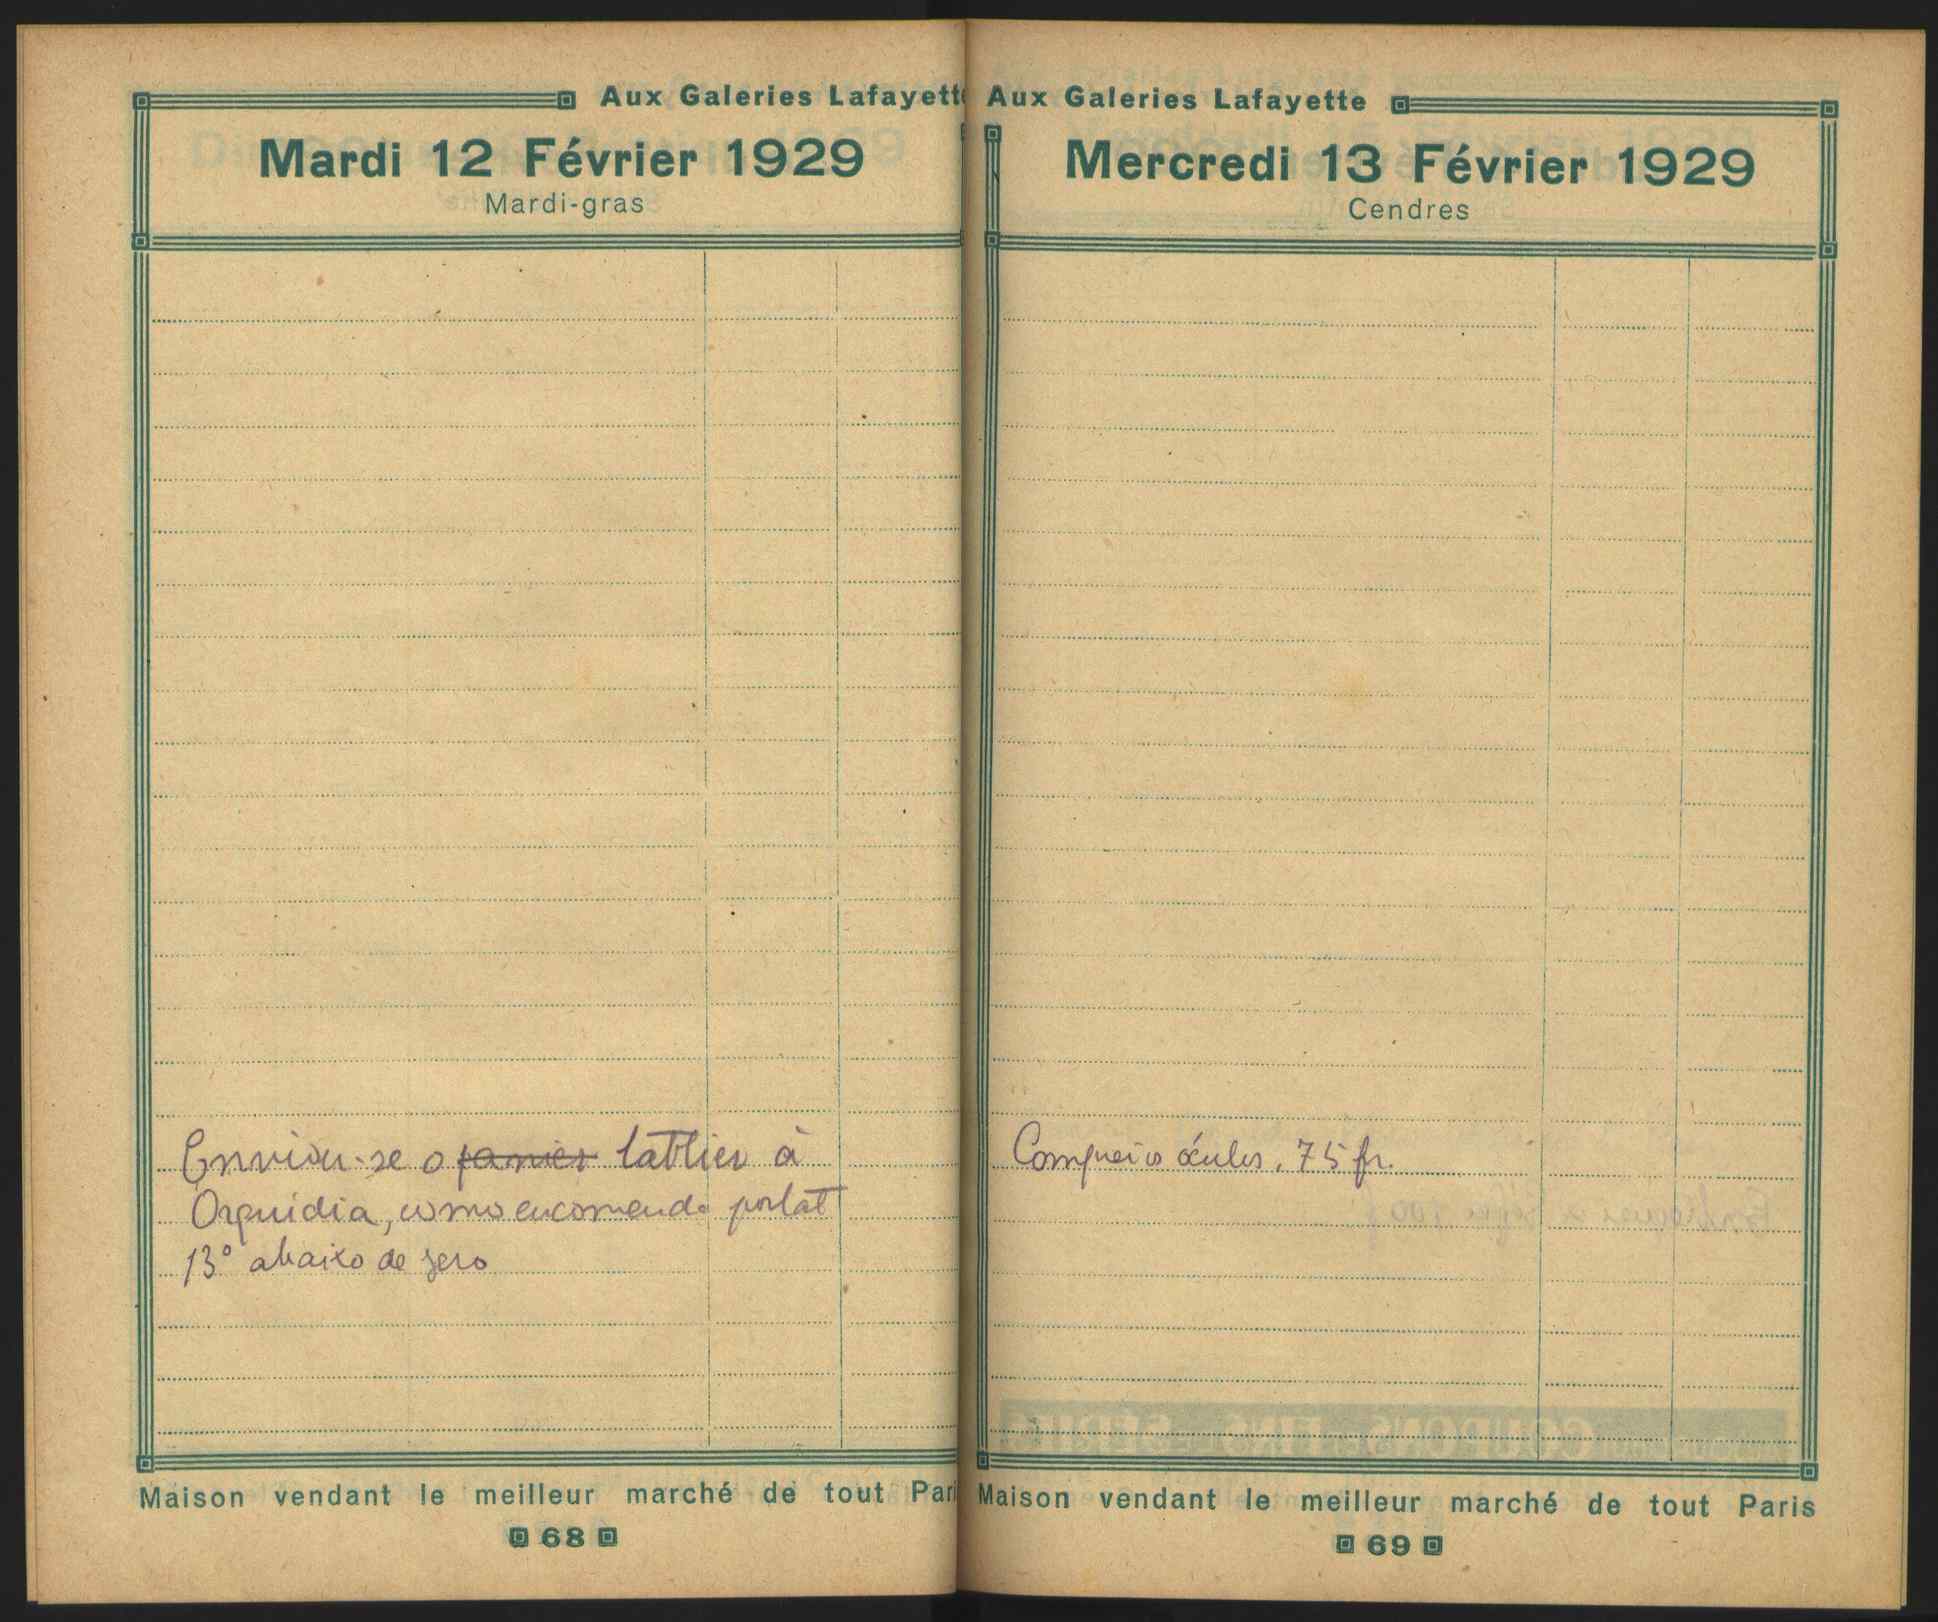 Aux Galeries Lafayett
Mardi 12 Février 1929
Mardi-gras
Enviou-se o panier tablier à
Orquidia, como encomenda postal
13º abaixo de zero
Maison vendant le meilleur marché de tout Pari
68
Aux Galeries Lafayette
Mercredi 13 Février 1929
Cendres
Comprei os óculos, 75 fr.
Maison vendant le meilleur marché de tout Paris
69